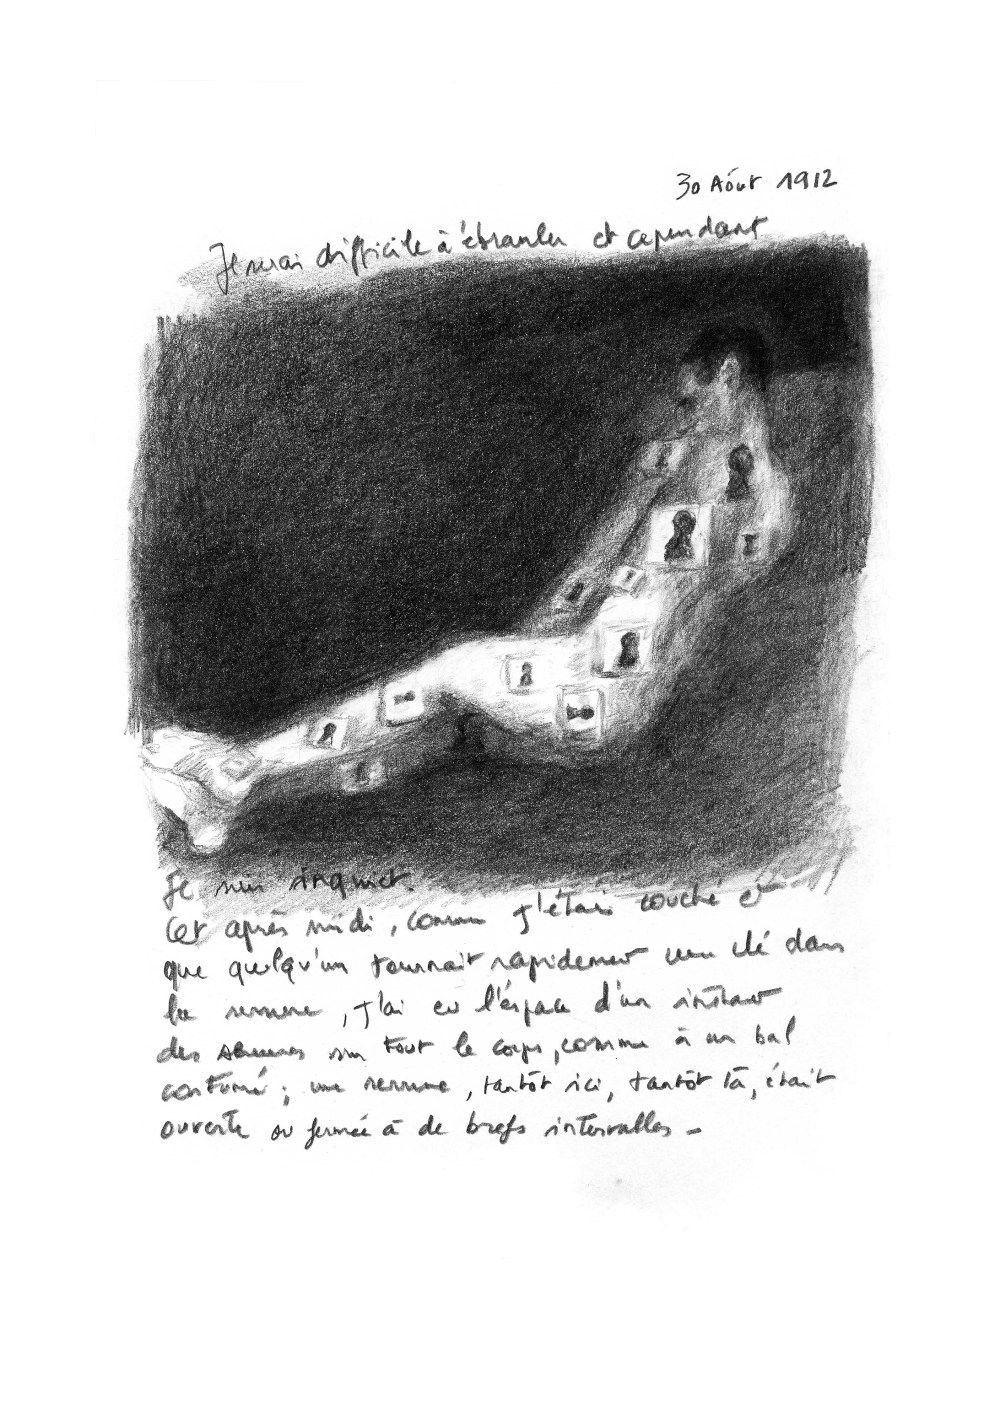 30 Août 1912
Je serai difficile à ébranler et cependant
Je suis inquiet.
Cet après midi, comme j'étais couché et
que quelqu'un tournait rapidement une clé dans
la serrure, j'ai eu l'espace d'un instant
des serrures sur tout le corps, comme à un bal
costumé ; une serrure, tantôt ici, tantôt là, était
ouverte ou fermée à de brefs intervalles -